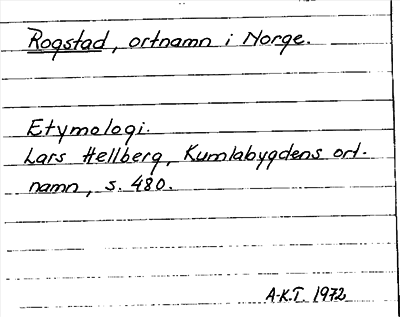 Rogstad, ortnamn i Norge.
Etymologi.
Lars Hellberg, Kumlabygdens ort-
namn, s. 480.
A-K.T. 1972